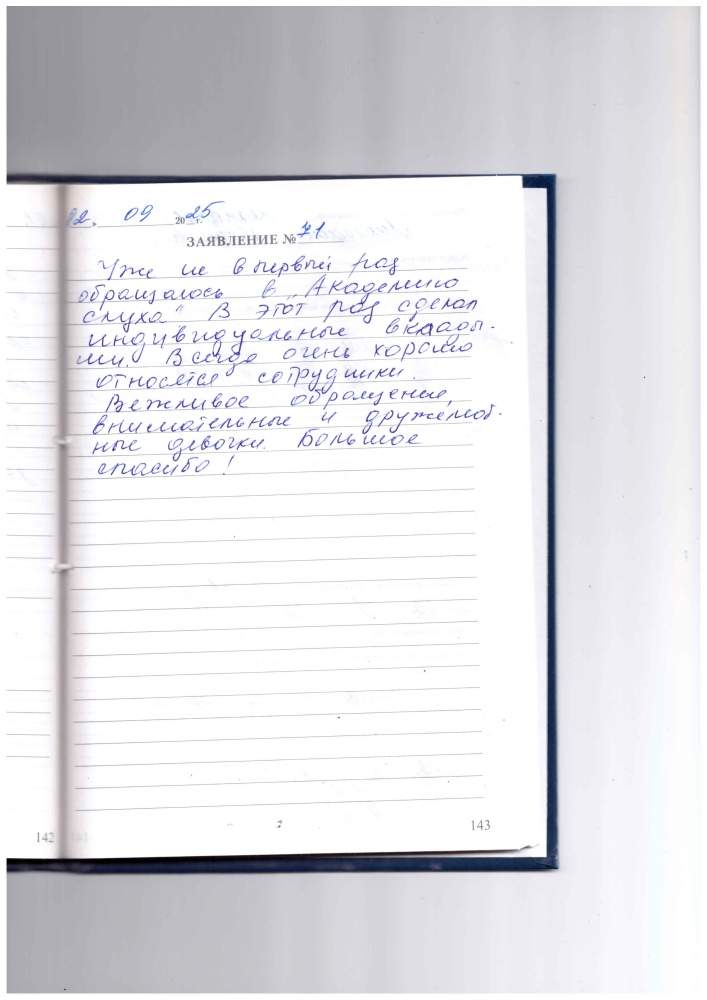 12. 09 2025 г.
ЗАЯВЛЕНИЕ № 71
Уже не в первый раз
обращаюсь в „Академию
слуха" В этот раз сделал
индивидуальные вклады-
ши. Всегда очень хорошо
относятся сотрудники.
Вежливое обращение,
внимательные и дружелюб-
ные девочки. Большое
спасибо!
142
143